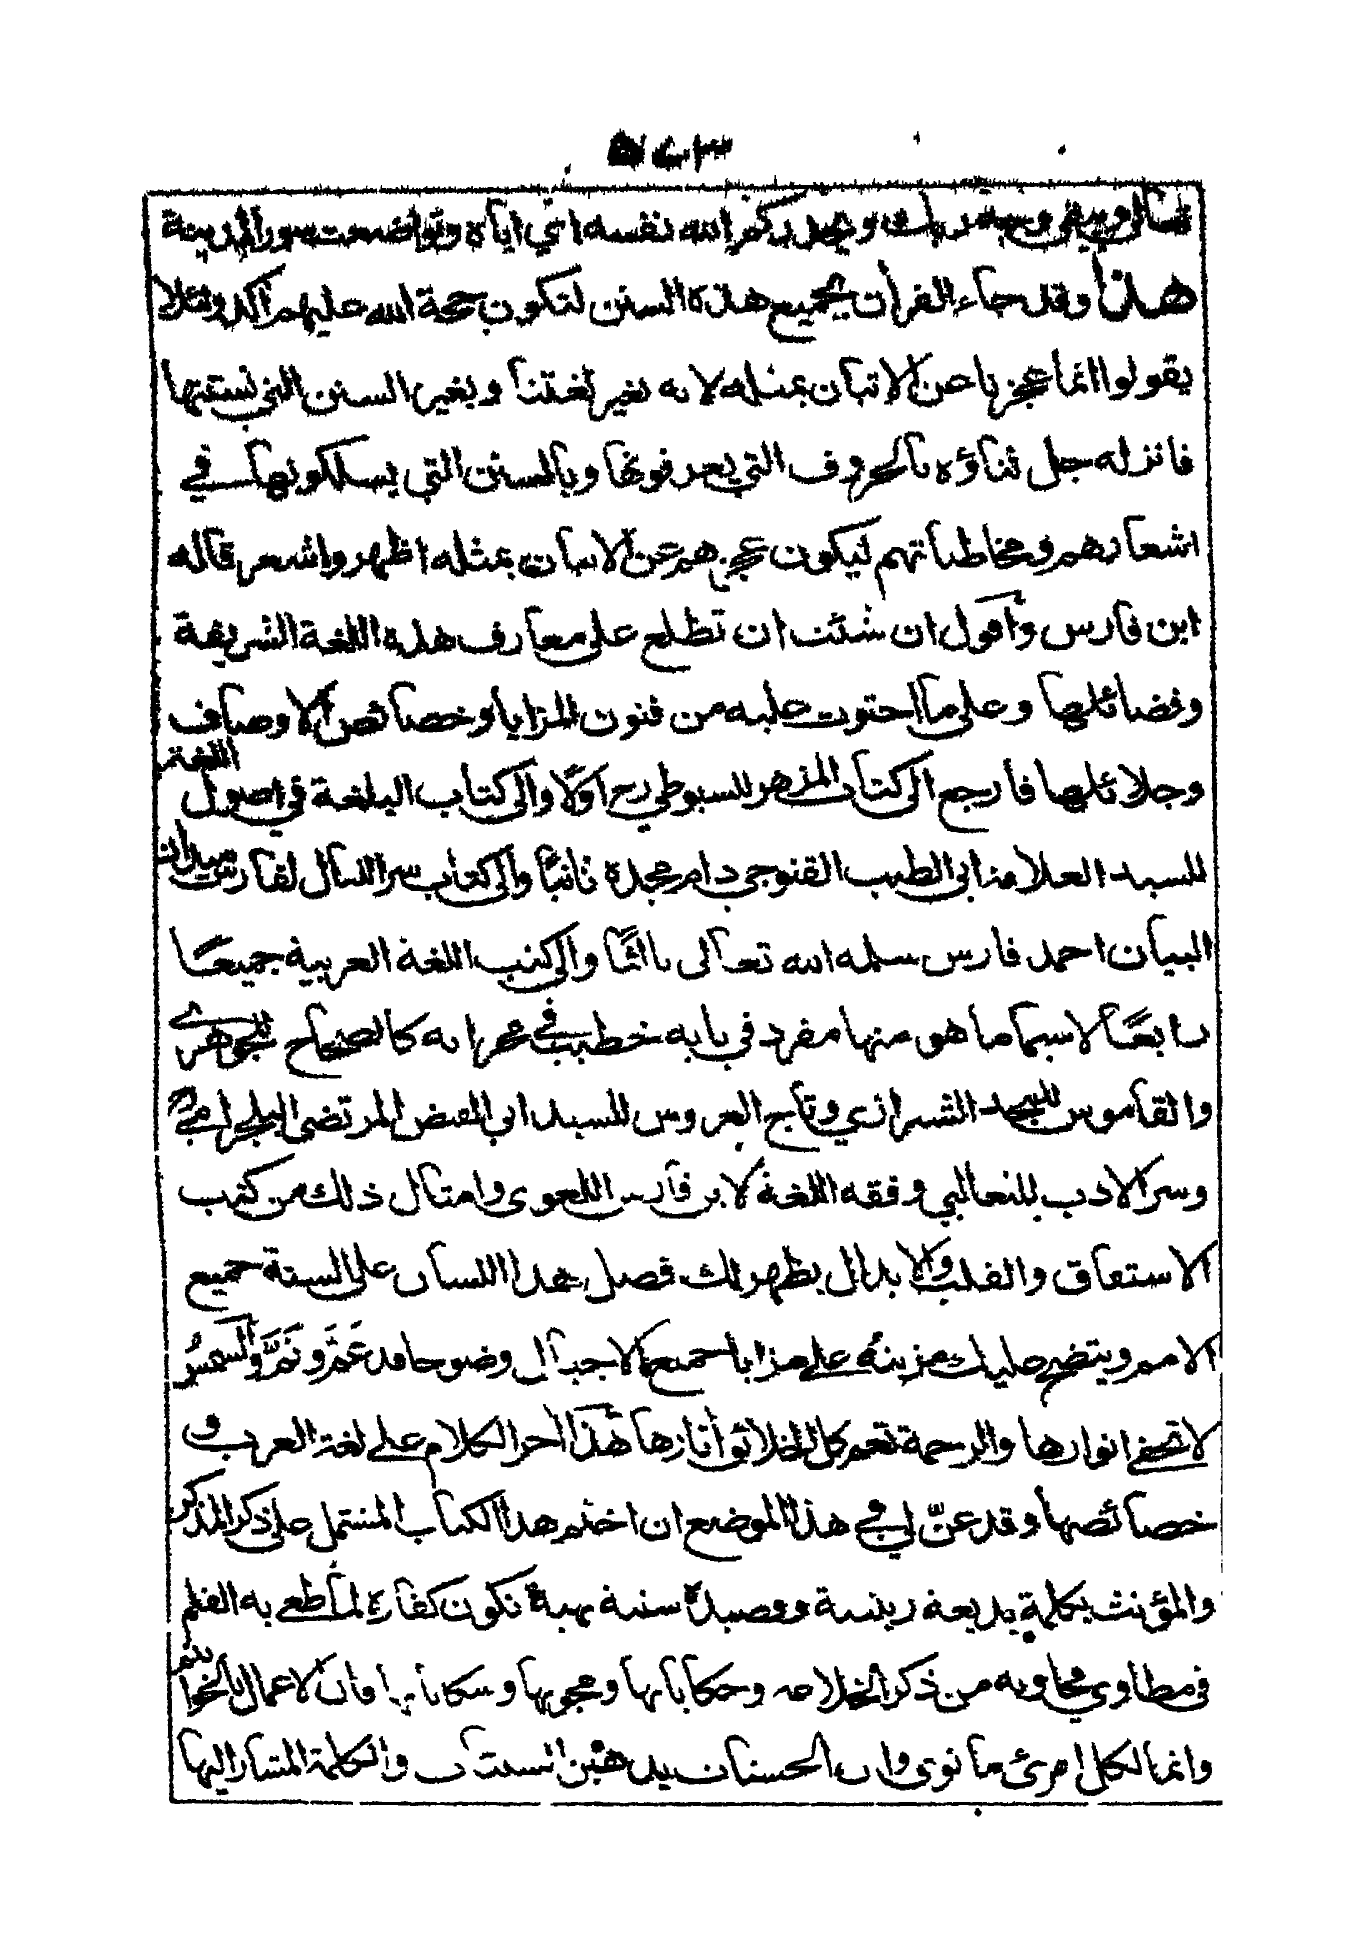 تعالى ويبقى وجه ربك ويحذركم الله نفسه اي اياه وتواضعت سور المدينة
هذا وقد جاء القرأن بجميع هذه السنن لتكون حجة الله عليهم اكد ولئلا
يقولوا انما عجزنا عن الاتيان بمثله لانه بغير لغتنا وبغير السنن التي نستنها
فانزله جل ثناؤه بالحروف التي يعرفونها وبالسنن التي يسلكونها في
اشعارهم ومخاطباتهم ليكون عجزهم عن الاتيان بمثله اظهر واشعر قاله
ابن فارس وأقول ان شئت ان تطلع على معارف هذه اللغة الشريفة
وفضائلها وعلى ما احتوت عليه من فنون المزايا وخصائص الاوصاف
وجلائلها فأرجع الى كتاب المزهر للسيوطي رح اولًا والى كتاب البلغة في اصول اللغة
للسيد العلامة ابى الطيب القنوجى دام مجده ثانيًا والى كتاب سر الليال لفارس ميدان
البيان احمد فارس سلمه الله تعالى ثالثًا والى كتب اللغة العربية جميعًا
رابعًا لاسيما ما هو منها مفرد في بابه خطيب في محرابه كالصحاح للجوهري
والقاموس للمجد الشيرازي وتاج العروس للسيد ابي الفيض المرتضى البلجرامي
وسر الادب للثعالبي وفقه اللغة لابن فارس اللغوى وامثال ذلك من كتب
الاشتقاق والقلب والابدال يظهر لك فضل هذا اللسان على السنة جميع
الامم ويتضح عليك مزينه على مزايا جميع الاجيال وضوحا قد عَمَّ ونَمَّ والشمسُ
لا تخفى انوارها والرحمة تعم كل الخلائق أثارها هذا أخر الكلام على لغة العرب و
خصائصها وقد عنّ لي في هذا الموضع ان اختم هذا الكتاب المشتمل على ذكر المذكر
والمؤنث بكلمة بديعة وقصيدة سنية بهية تكون كفارة لما طغى به القلم
في مطاوي من ذكر وحكاياتها ومجونها فان الاعمال بالخواتيم
وانما لكل امرئ ما نوى وان الحسنات يذهبن السيئات والكلمة المشار اليها